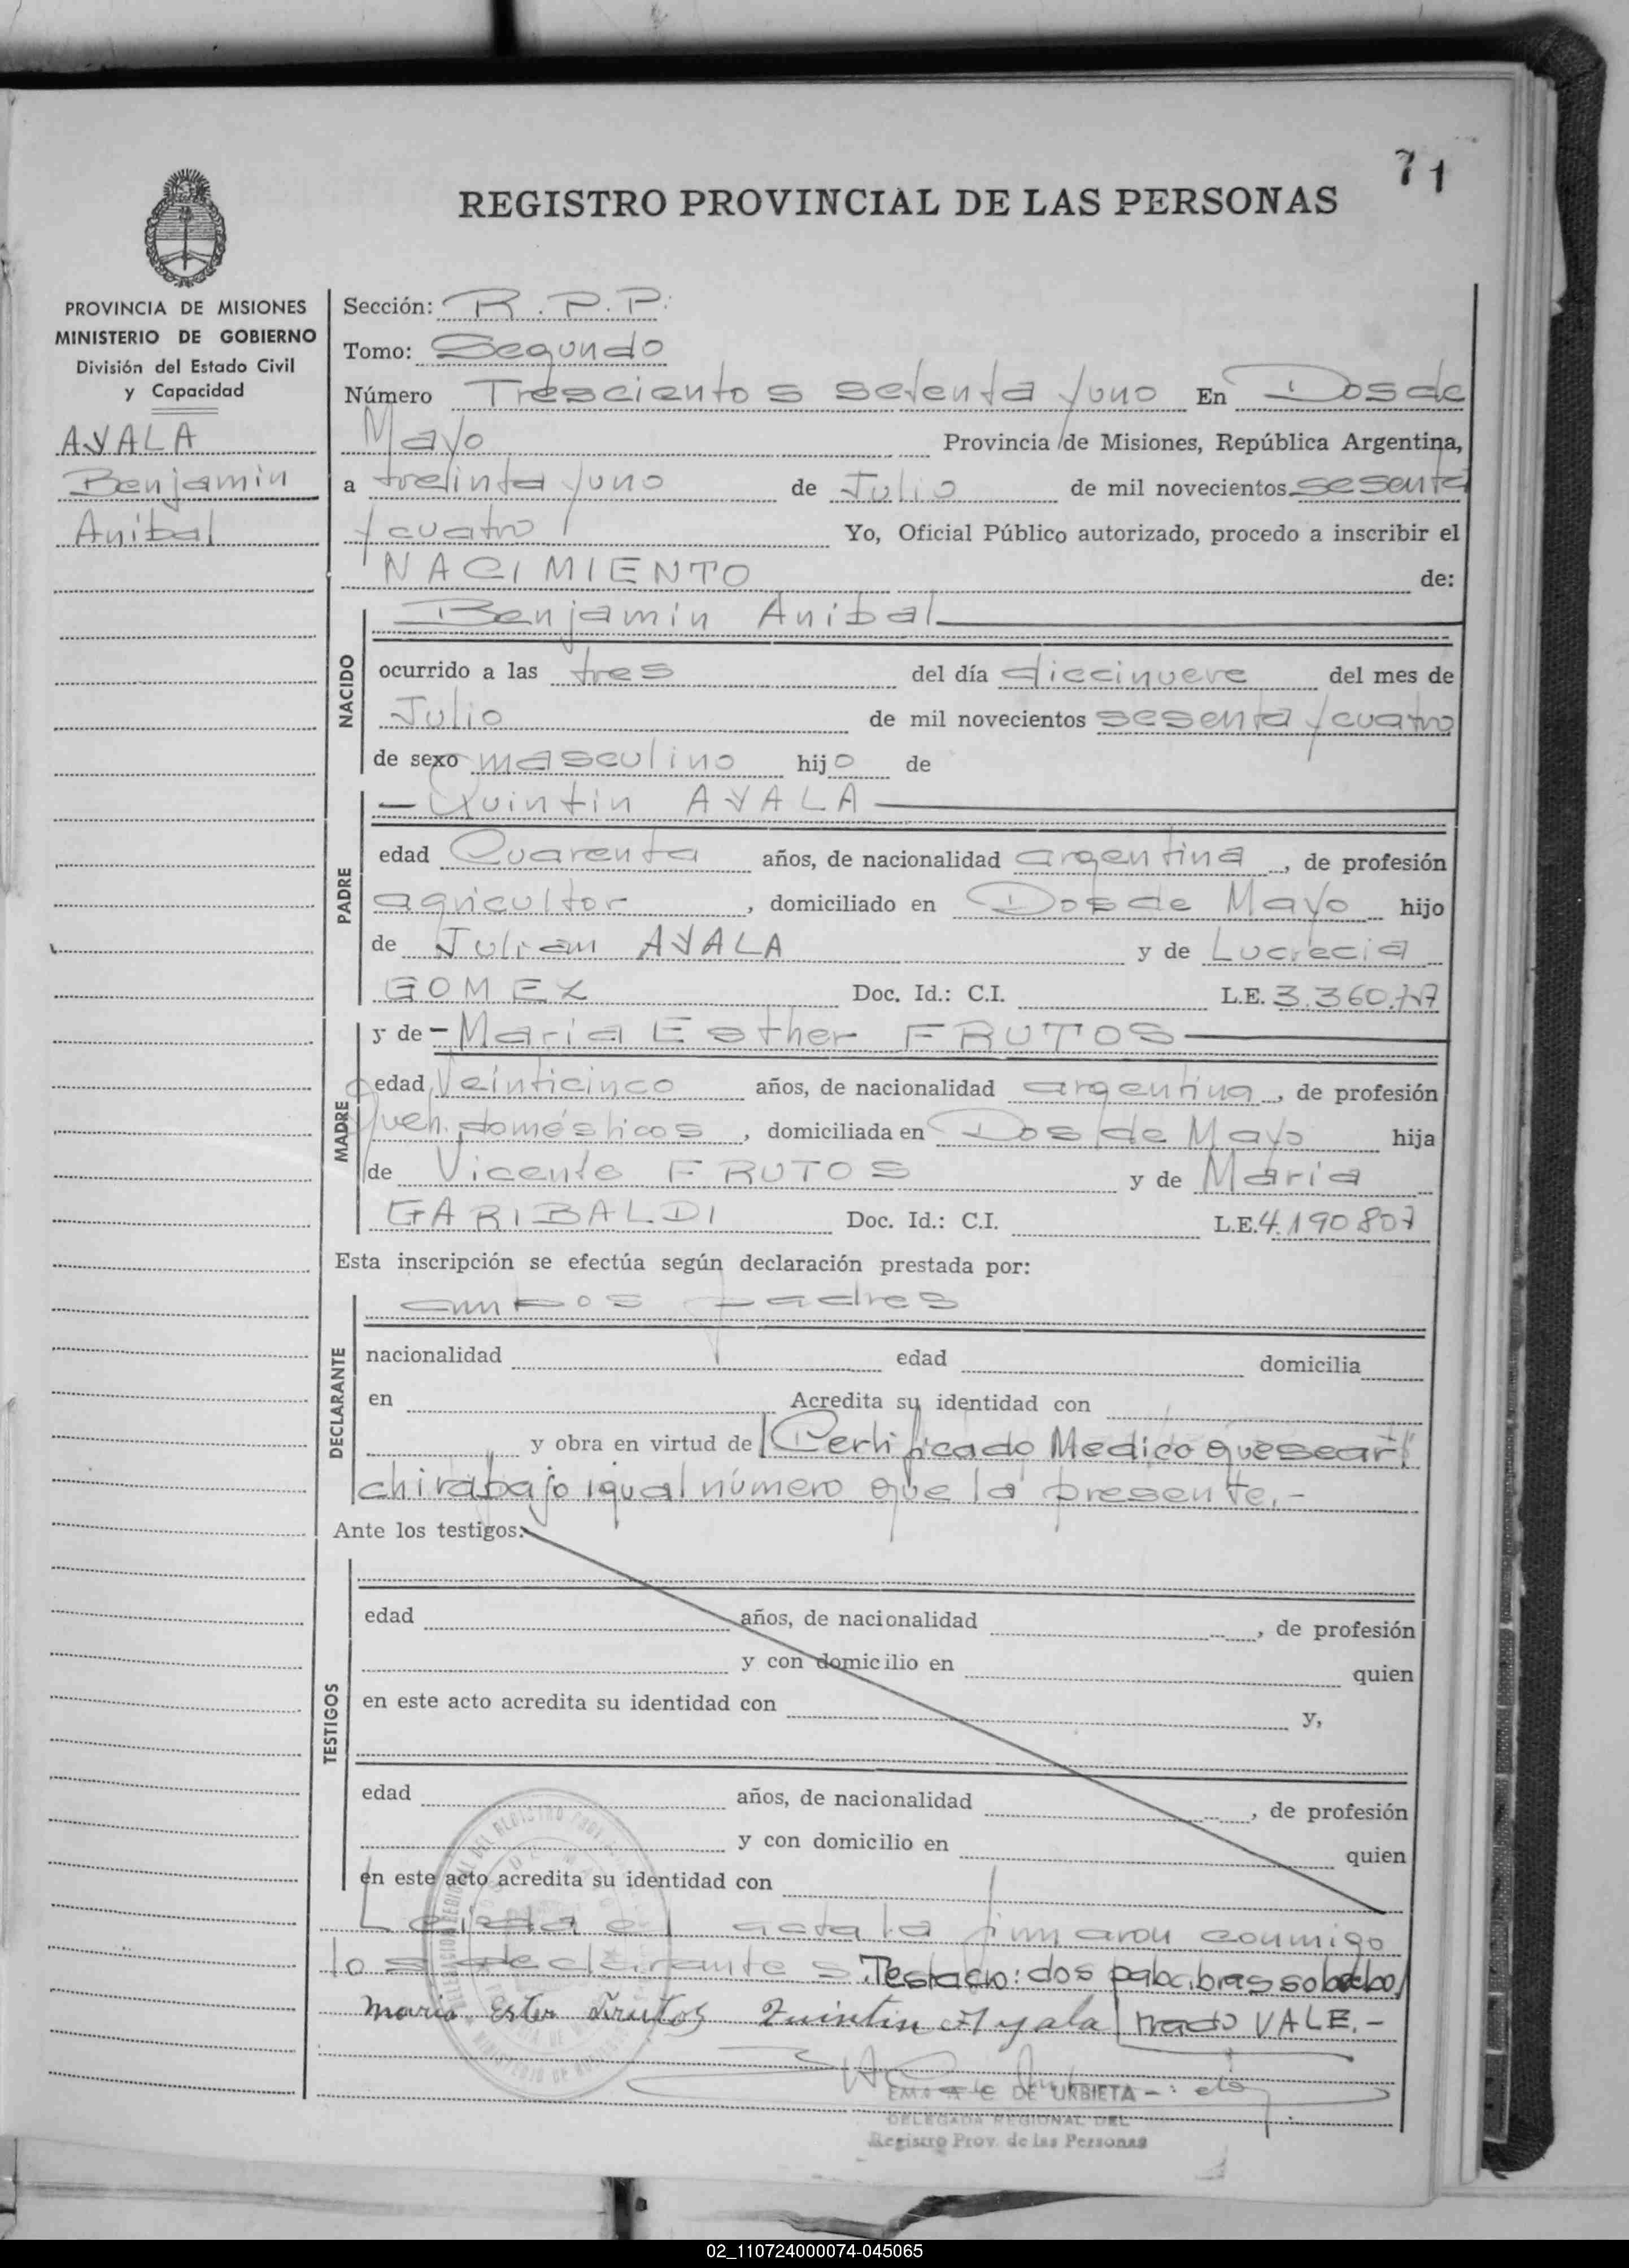 71
REGISTRO PROVINCIAL DE LAS PERSONAS
PROVINCIA DE MISIONES
MINISTERIO DE GOBIERNO
División del Estado Civil
y Capacidad
AYALA
Benjamin
Anibal
Sección: R. P. P.
Tomo: Segundo
Número Trescientos setenta y uno En Dos de
Mayo Provincia de Misiones, República Argentina,
a treinta y uno de Julio de mil novecientos sesenta
y cuatro Yo, Oficial Público autorizado, procedo a inscribir el
NACIMIENTO de:
NACIDO
Benjamin Anibal
ocurrido a las tres del día diecinueve del mes de
Julio de mil novecientos sesenta y cuatro
de sexo masculino hijo de
PADRE
— Quintin AYALA —
edad Cuarenta años, de nacionalidad argentina, de profesión
agricultor, domiciliado en Dos de Mayo hijo
de Julian AYALA y de Lucrecia
GOMEZ Doc. Id.: C.I. L.E. 3.360.
MADRE
y de — Maria Esther FRUTOS —
edad Veinticinco años, de nacionalidad argentina, de profesión
queh. domésticos, domiciliada en Dos de Mayo hija
de Vicente FRUTOS y de Maria
GARIBALDI Doc. Id.: C.I. L.E. 4.190807
Esta inscripción se efectúa según declaración prestada por:
DECLARANTE
ambos padres
nacionalidad edad domicilia
en Acredita su identidad con
y obra en virtud de Certificado Medico que se ar
chiva bajo igual número que la presente.-
Ante los testigos:
TESTIGOS
edad años, de nacionalidad , de profesión
y con domicilio en quien
en este acto acredita su identidad con y,
edad años, de nacionalidad , de profesión
y con domicilio en quien
en este acto acredita su identidad con
Leida el acta la firmaron conmigo
los declarantes. Testado: dos palabras
Maria Ester Frutos Quintin Ayala VALE.-
DE URBIETA
DELEGADA REGIONAL DEL
Registro Prov. de las Personas
02_110724000074-045065